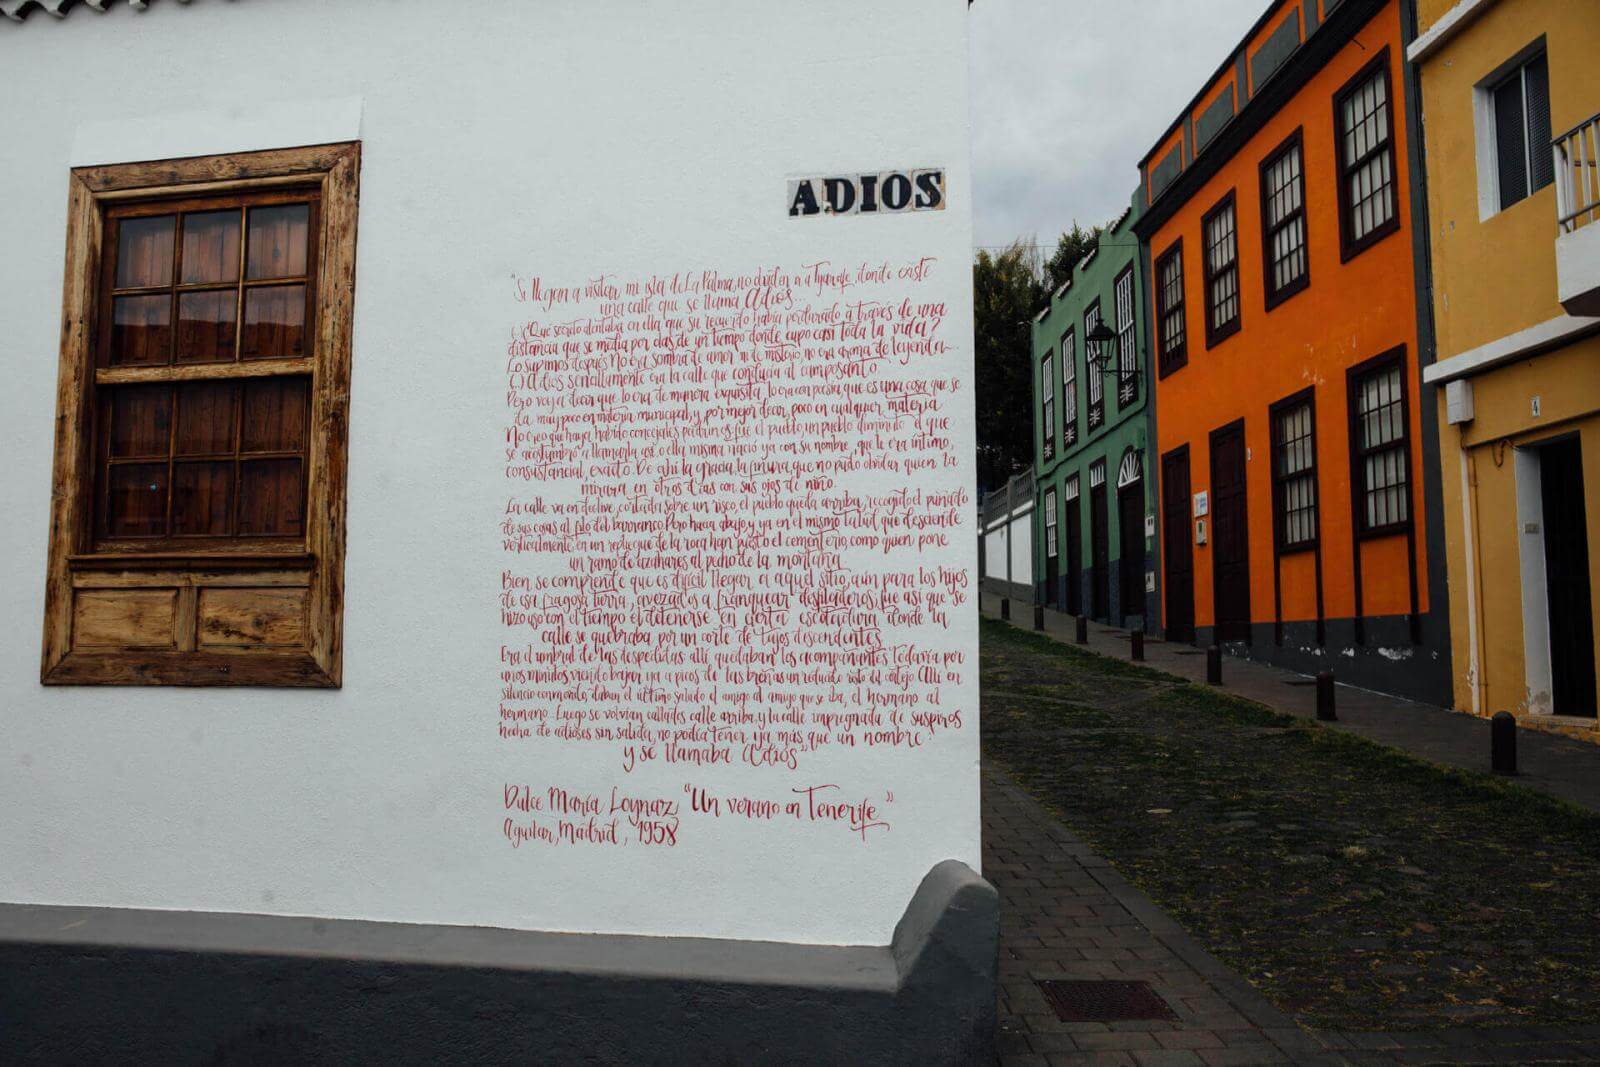 ADIOS
"Si llegan a visitar mi isla de La Palma, no olviden ir a Tijarafe, donde existe
una calle que se llama Adios...
(...)¿Qué secreto alentaba en ella que su recuerdo había perdurado a través de una
distancia que se medía por días de un tiempo donde cupo casi toda la vida?
Lo supimos después. No era sombra de amor ni de misterio, no era aroma de leyenda...
(...) Adios sencillamente era la calle que conducía al camposanto.
Pero voy a decir que lo era de manera exquisita, lo era con poesía, que es una cosa que se
da muy poco en materia municipal, y, por mejor decir, poco en cualquier materia
No creo que haya habido concejales peritos fue el pueblo, un pueblo diminuto el que
se acostumbró a llamarla así, o ella misma nació ya con su nombre, que le era íntimo,
consustancial, exacto. De ahí la gracia, la finura, que no pudo olvidar quien la
mirara en otros días con sus ojos de niño.
La calle va en declive, cortada sobre un risco, el pueblo queda arriba, recogido el puñado
de sus casas al filo del barranco. Pero hacia abajo, y ya en el mismo talud que desciende
verticalmente, en un repliegue de la roca han puesto el cementerio, como quien pone
un ramo de azahares al pecho de la montaña
Bien se comprende que es difícil llegar a aquel sitio, aún para los hijos
de esa fragosa tierra, avezados a franquear desfiladeros, fue así que se
hizo uso con el tiempo el detenerse en cierta escotadura donde la
calle se quebraba por un corte de tajos descendentes
Era el umbral de las despedidas: allí quedaban los acompañantes todavía por
unos minutos viendo bajar ya a picos de las breñas un reducido resto del cortejo. Allí en
silencio conmovido, daban el último saludo el amigo al amigo que se iba, el hermano al
hermano. Luego se volvían callados calle arriba, y la calle impregnada de suspiros
hecha de adioses sin salida, no podía tener ya más que un nombre:
y se llamaba Adios"
Dulce María Loynaz, "Un verano en Tenerife"
Aguilar, Madrid, 1958
4